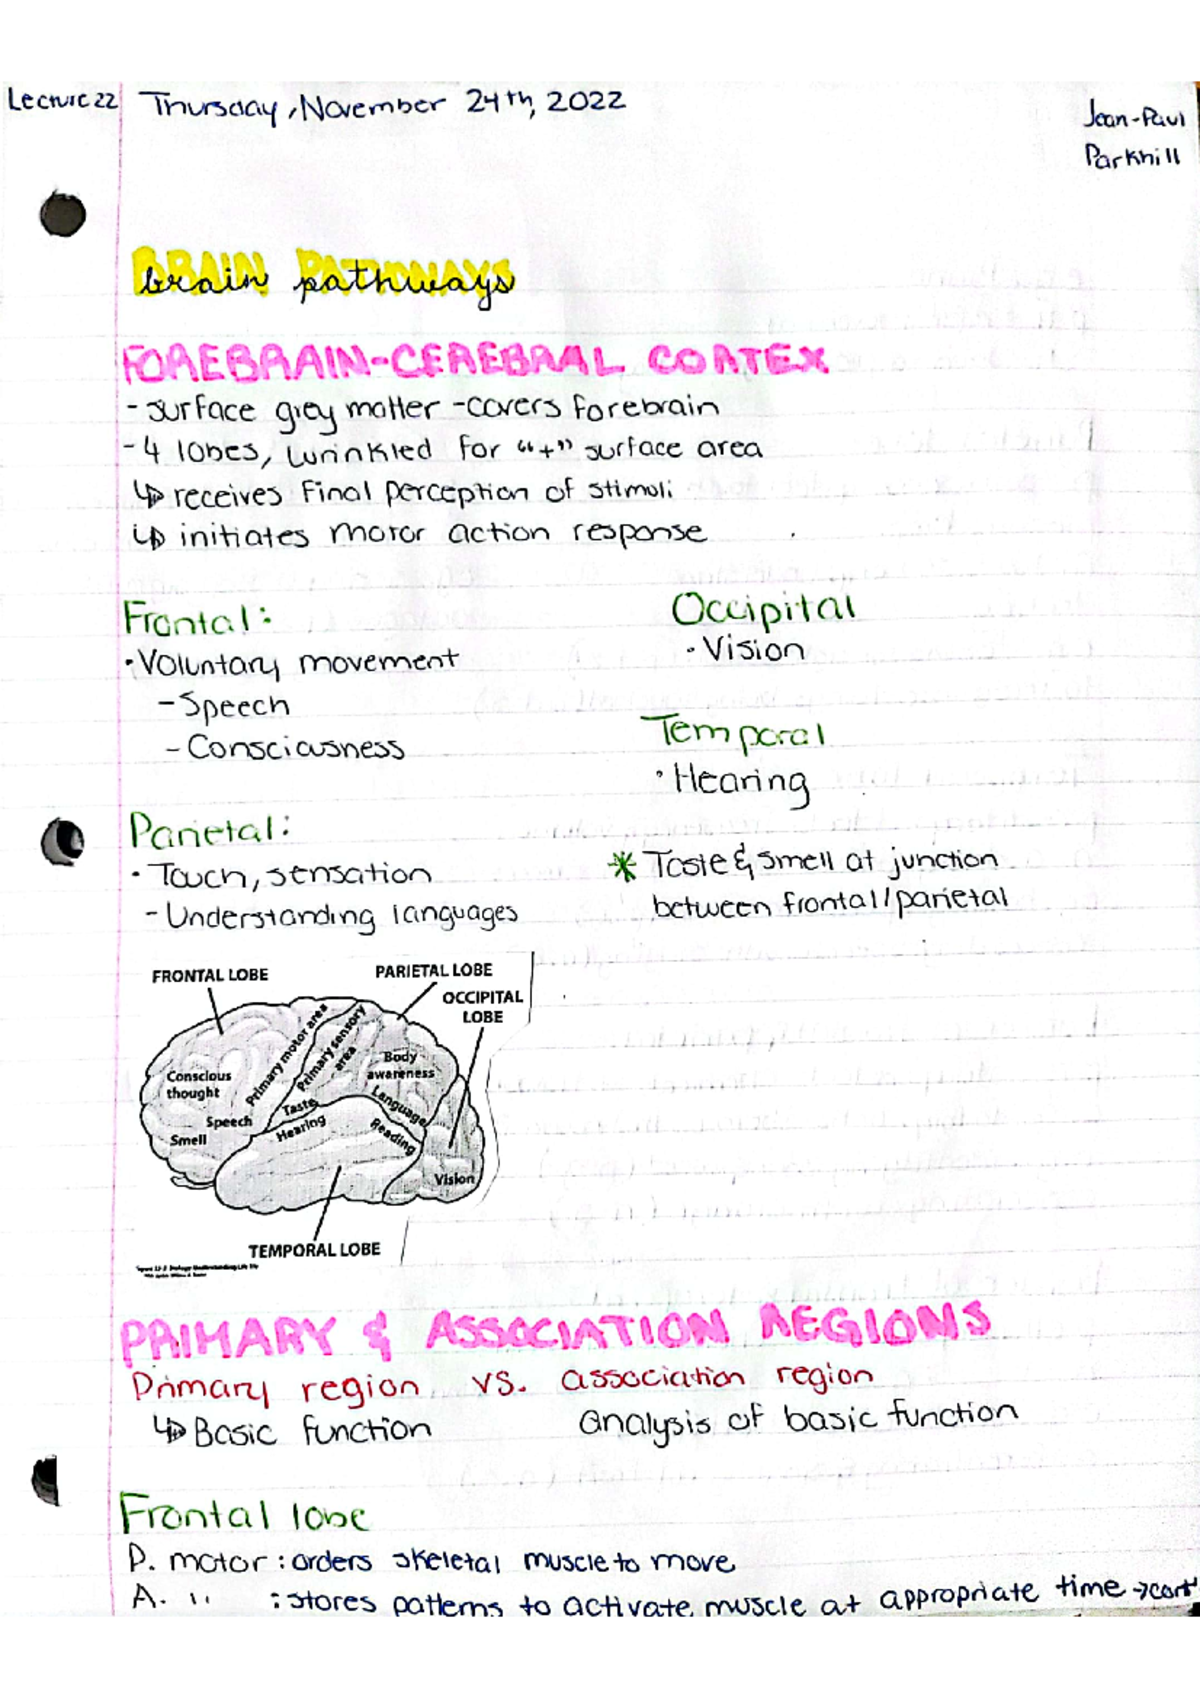 Lecture 22
Thursday, November 24th, 2022
Jean-Paul
Parkhill
BRAIN PATHWAYS
brain pathways
FOREBRAIN-CEREBRAL CORTEX
- surface grey matter - covers forebrain
- 4 lobes, wrinkled for "+" surface area
↳ receives final perception of stimuli
↳ initiates motor action response
Frontal:
• Voluntary movement
- Speech
- Consciousness
Occipital
• Vision
Temporal
• Hearing
Parietal:
• Touch, sensation
- Understanding languages
* Taste & smell at junction
between frontal/parietal
FRONTAL LOBE
PARIETAL LOBE
OCCIPITAL
LOBE
Primary motor area
Primary sensory
area
Body
awareness
Conscious
thought
Language
Taste
Speech
Hearing
Reading
Smell
Vision
TEMPORAL LOBE
PRIMARY & ASSOCIATION REGIONS
Primary region vs. association region
↳ Basic function
analysis of basic function
Frontal lobe
P. motor : orders skeletal muscle to move
A. " : stores patterns to activate muscle at appropriate time →